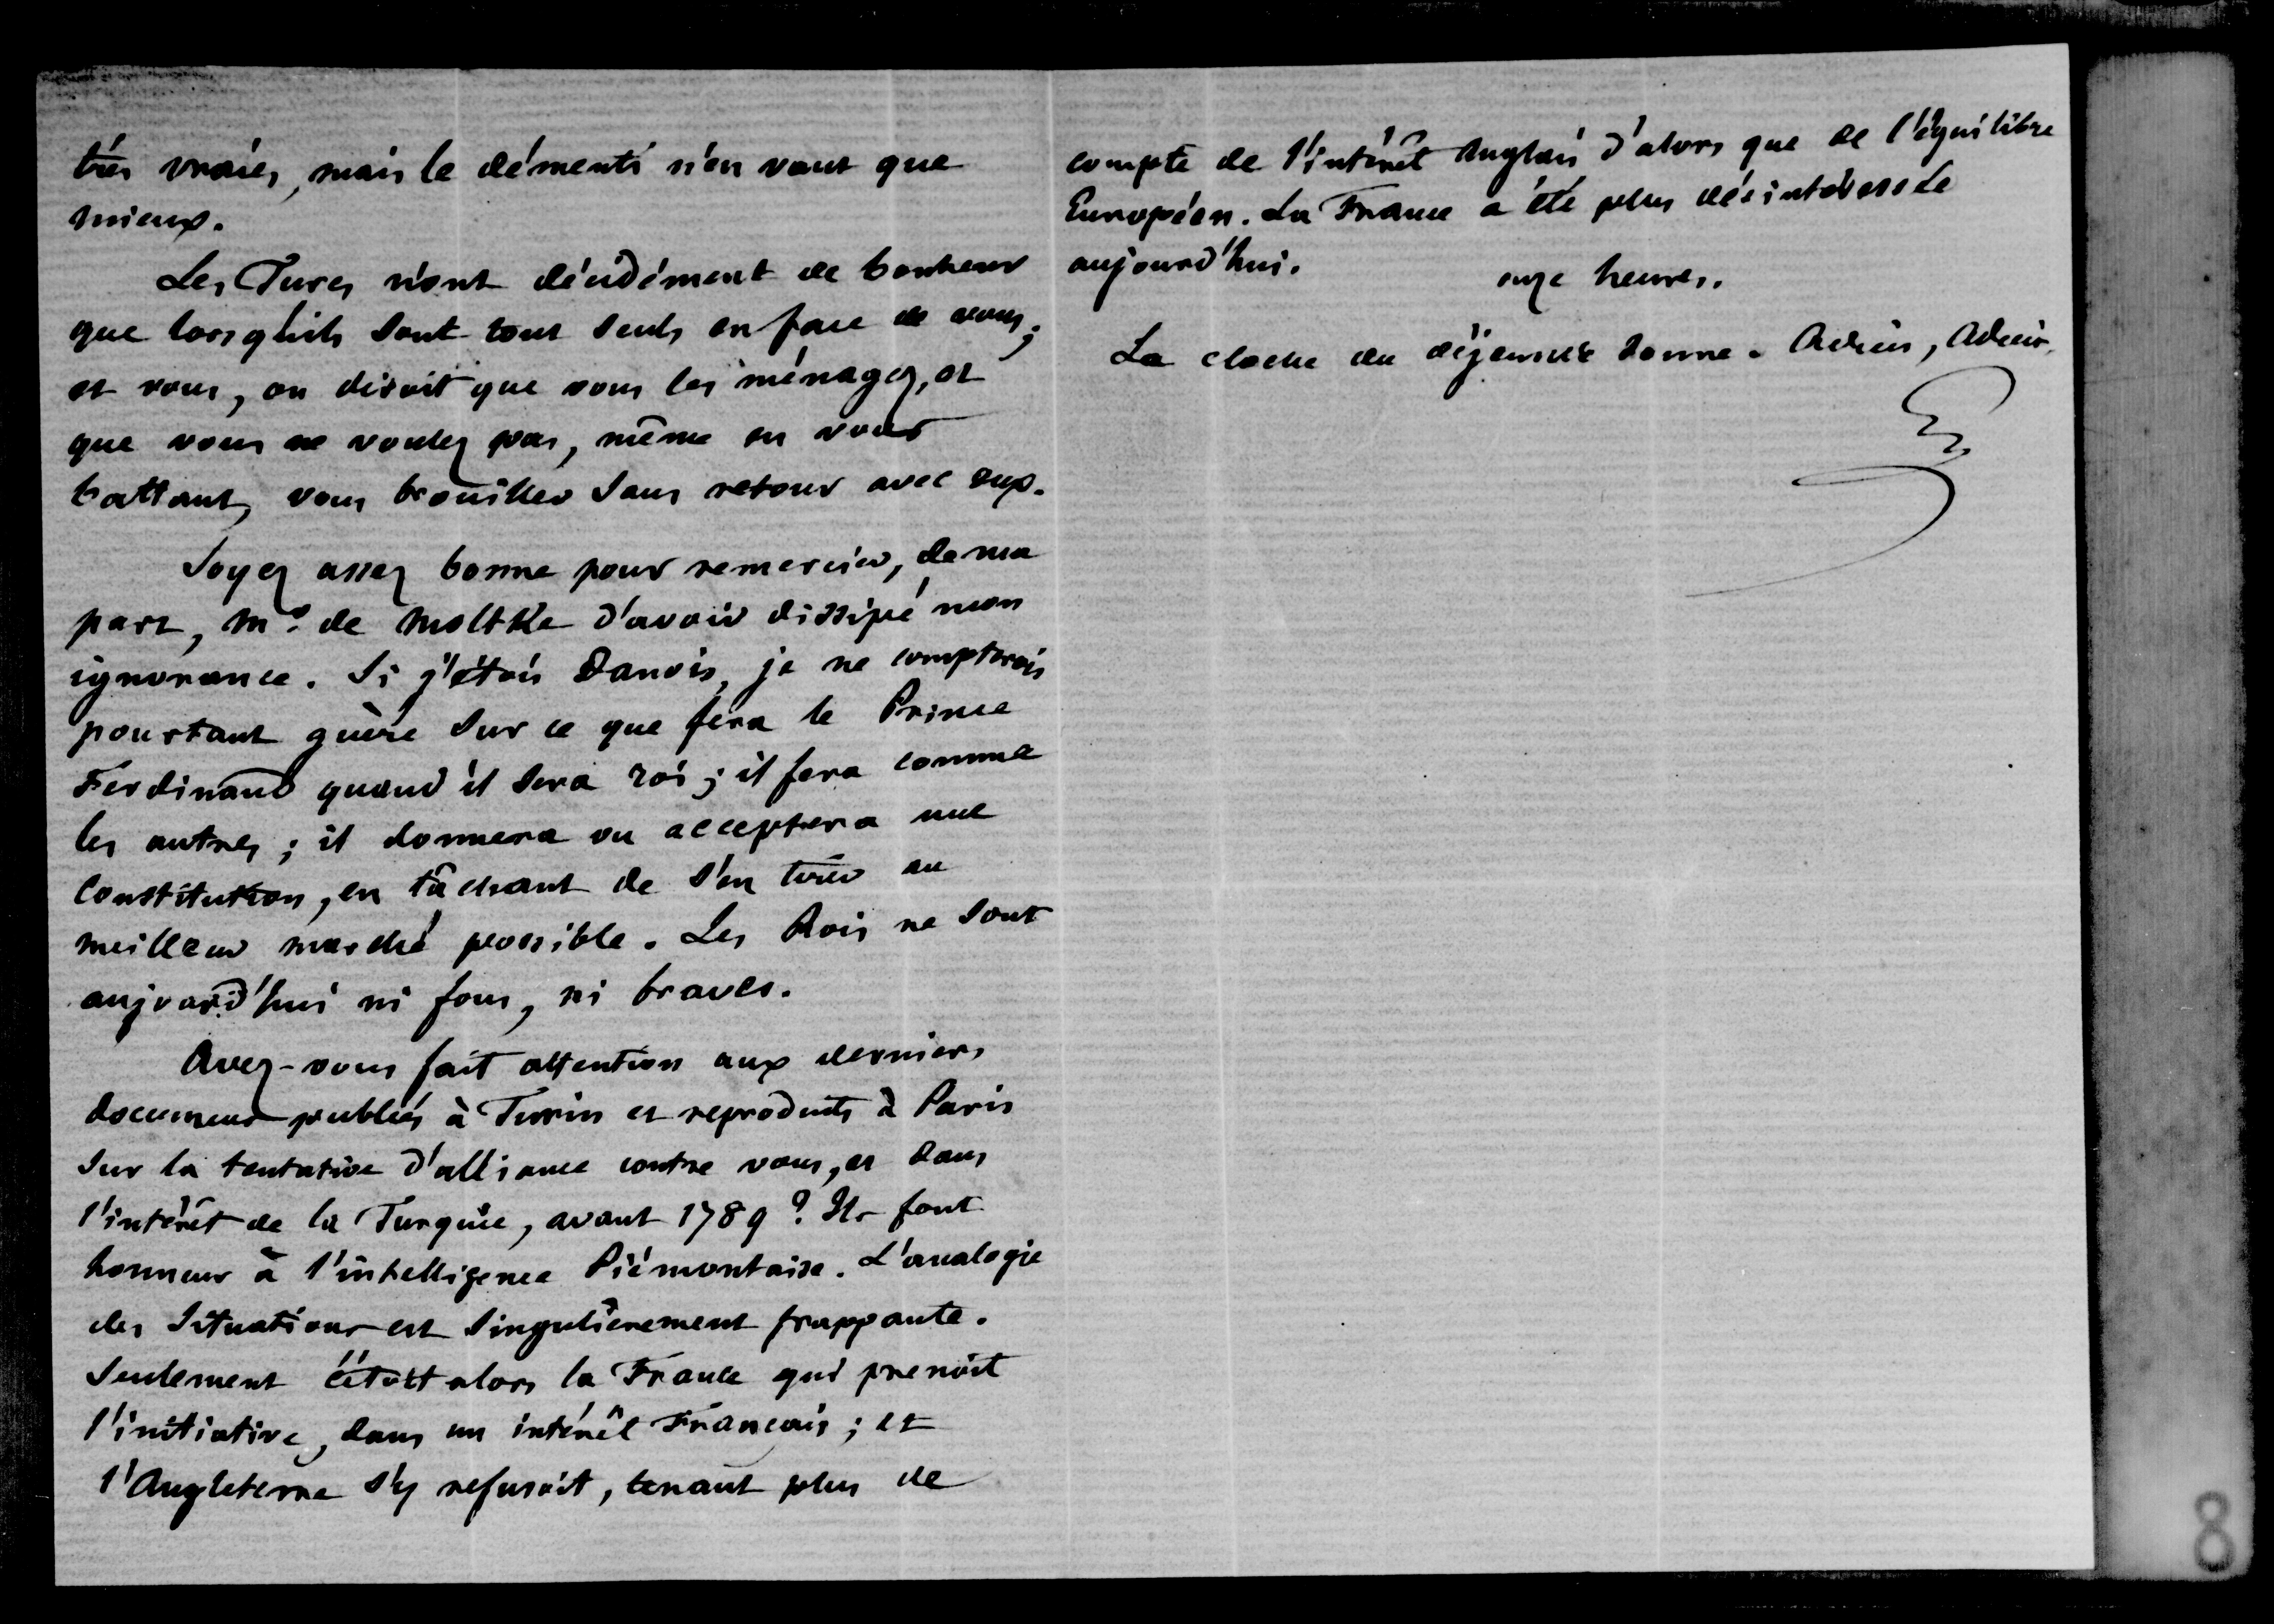 très vraies, mais le démenti n'en vaut que
mieux.
Les Turcs n'ont décidément de bonheur
que lorsqu'ils sont tous seuls en face de vous;
et vous, on diroit que vous les ménagez, et
que vous ne voulez pas, même en vous
battant, vous brouiller sans retour avec eux.
Soyez assez bonne pour remercier, de ma
part, Mr. de Moltke d'avoir dissipé mon
ignorance. Si j'étois Danois, je ne compterois
pourtant guère sur ce que fera le Prince
Ferdinand quand il sera roi; il fera comme
les autres; il donnera ou acceptera une
constitution, en tâchant de s'en tirer au
meilleur marché possible. Les Rois ne sont
aujourd'hui ni fous, ni braves.
Avez-vous fait attention aux derniers
documens publiés à Turin et reproduits à Paris
sur la tentative d'alliance contre vous, et dans
l'intérêt de la Turquie, avant 1789? Ils font
honneur à l'intelligence Piémontaise. L'analogie
des situations est singulièrement frappante.
Seulement c'étoit alors la France qui prenoit
l'initiative, dans un intérêt Français; et
l'Angleterre s'y refusoit, tenant plus de
compte de l'intérêt Anglais d'alors que de l'équilibre
Européen. La France a été plus désintéressée
aujourd'hui.
onze heures.
La cloche du déjeuner sonne. Adieu, Adieu.
8